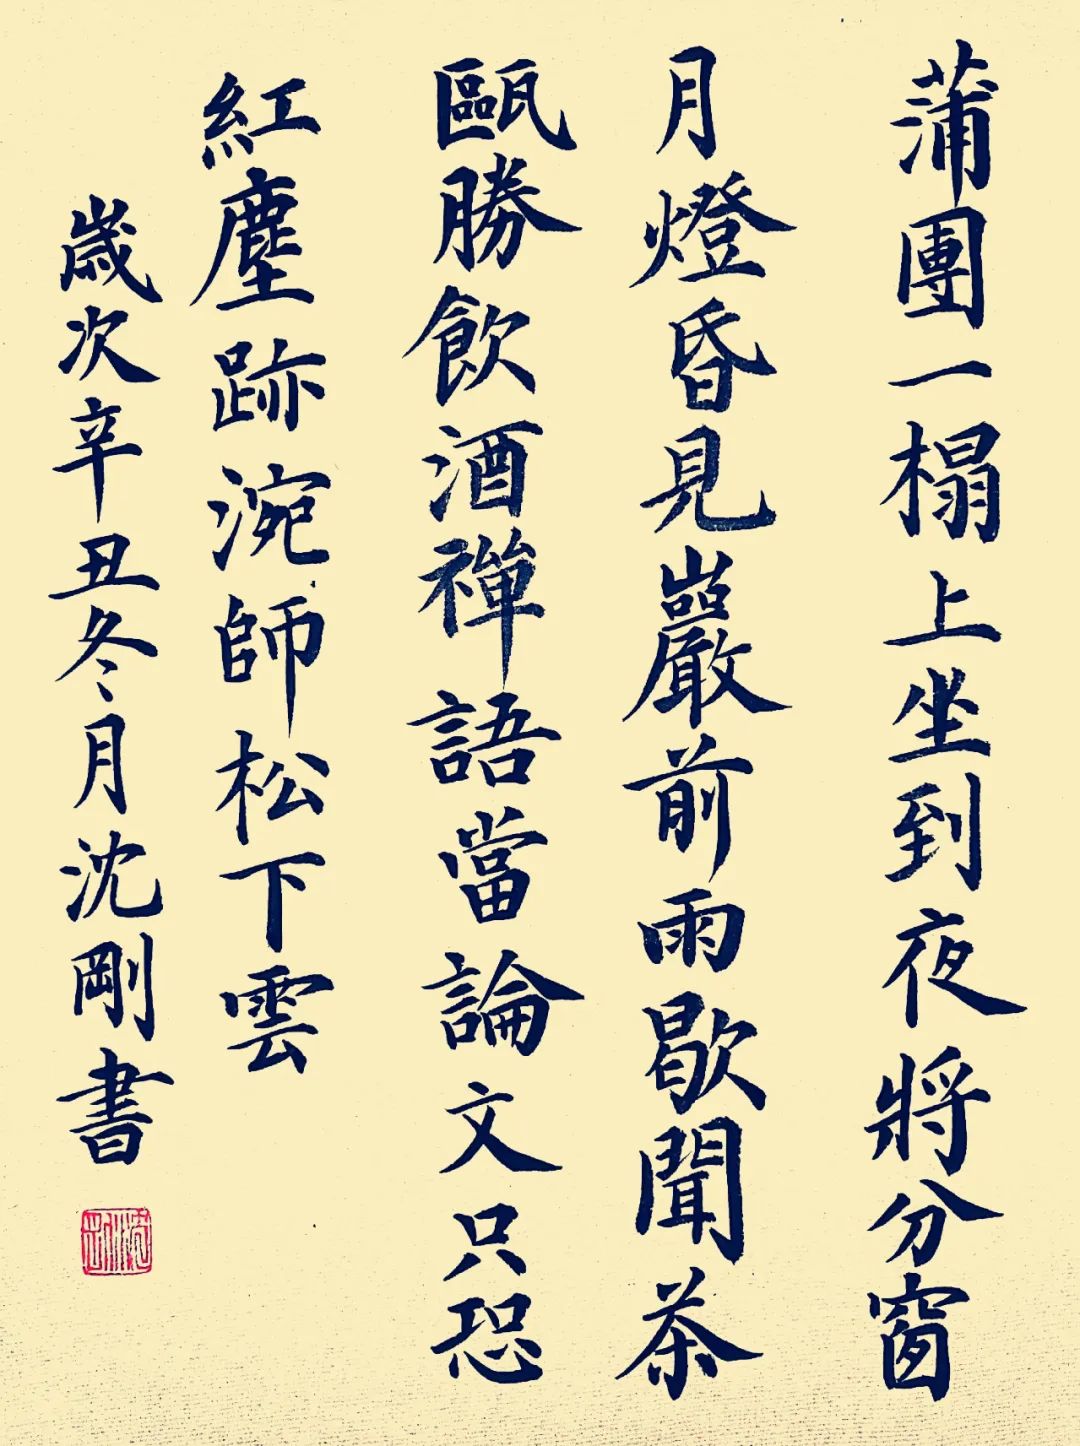 蒲團一榻上坐到夜將分窗
月燈昏見巖前雨歇聞茶
甌勝飲酒禪語當論文只恐
紅塵跡涴師松下雲
歲次辛丑冬月沈剛書